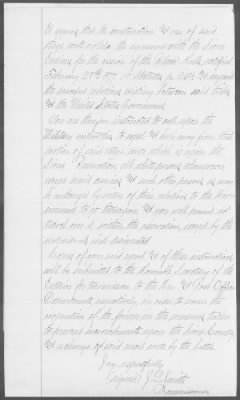 of opening that the construction & use of said
route will violate the agreement with the Sioux
Indians for the cession of the Black Hills, ratified
February 28th 1877, 19 Statutes, p. 254 & imperil
the peaceful relations existing between said tribe
& the United States Government.
You are therefore instructed to call upon the
Military authorities to assist & keep away from that
portion of said route which is upon the
Sioux Reservation all white persons whomsoever
except mail carriers & such other persons as may
be authorized by virtue of their relations to the Gov-
ernment to
travel over & within the reservation, except by the
individuals just designated.
Copies of your said report & of these instructions
will be submitted to the Honorable Secretary of the
Interior for transmission to the War & Post Office
Departments respectively, in order to secure the
cooperation of the former in the measures taken
to prevent encroachments upon the Sioux Country,
& a change of said mail route by the latter.
Very respectfully
(signed) J. Q. Smith
Commissioner